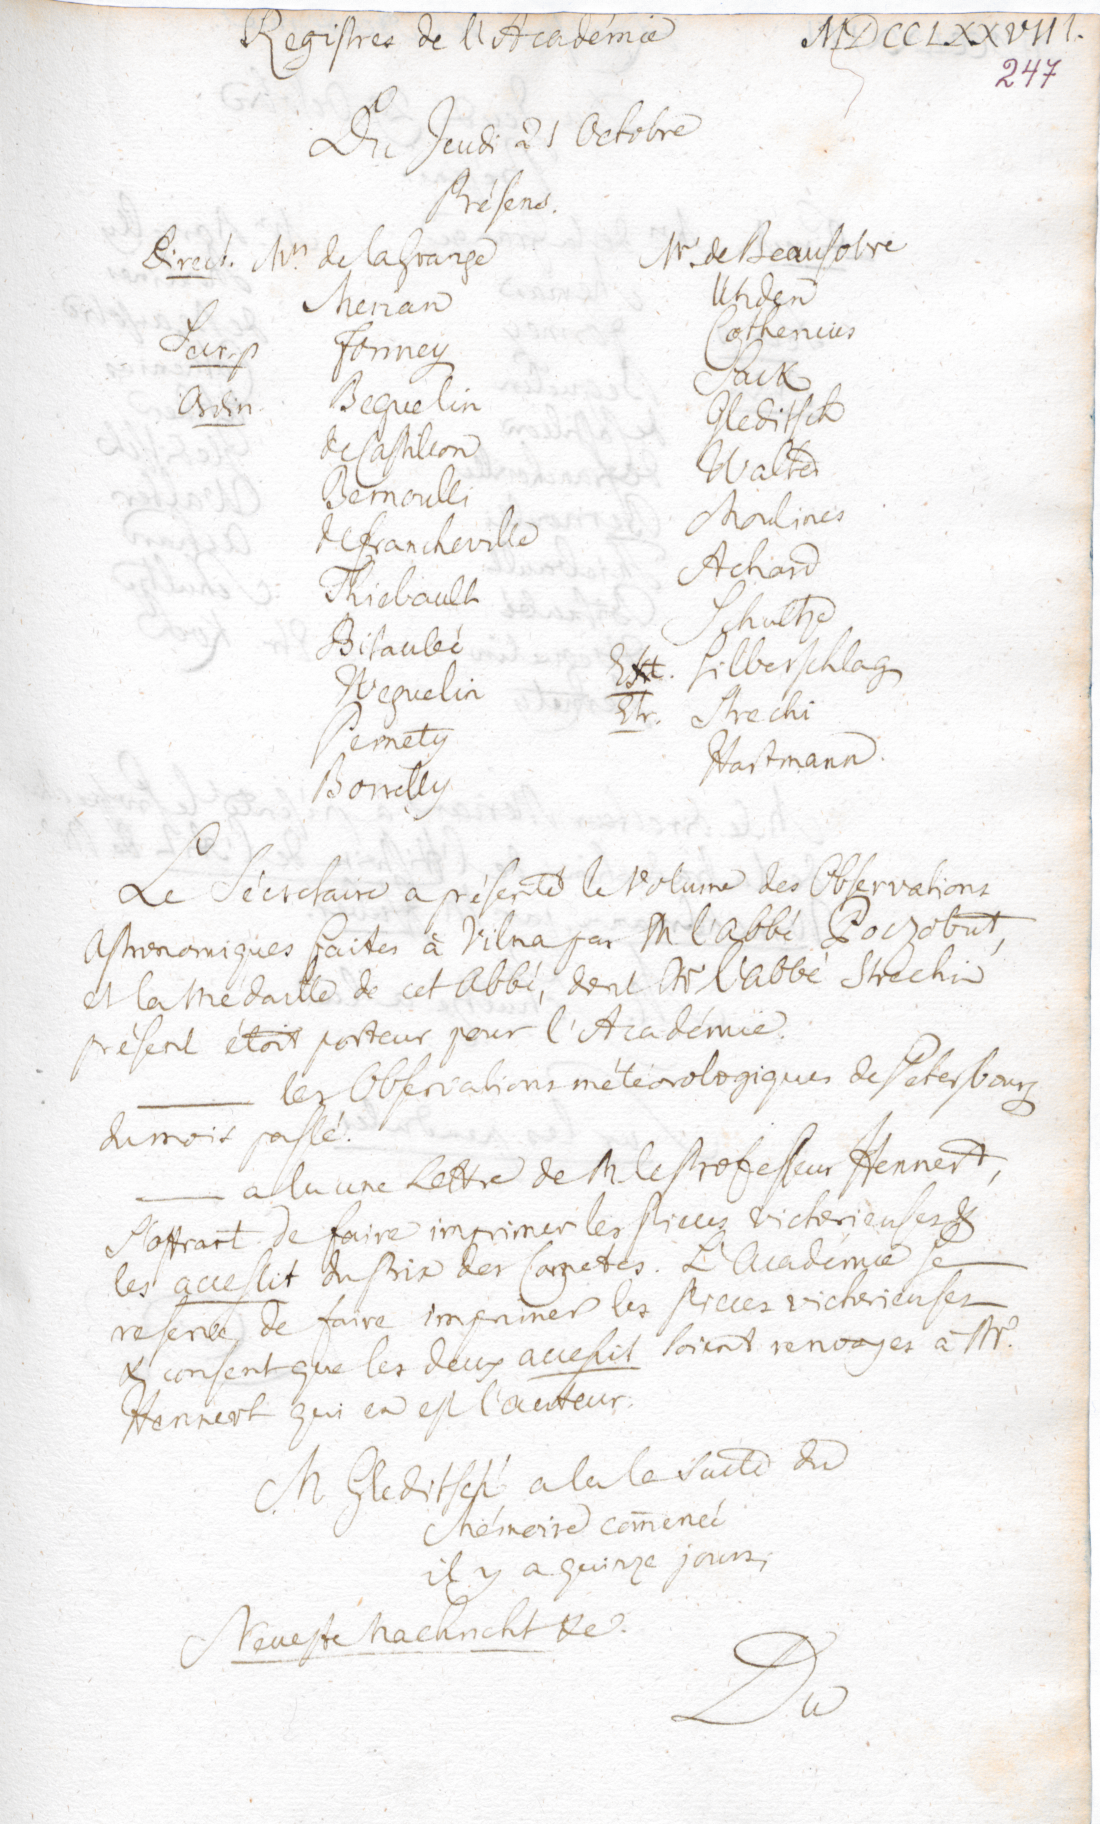 Registres de l'Académie MDCCLXXVIII.
247
Du Jeudi 21 Octobre
Présens.
Direct. Mrs de la Grange
Merian
Formey
Ordin. Beguelin
de Castillon
Bernoulli
de Francheville
Thiebault
Bitaubé
Weguelin
Pernety
Borrelly
Mr. de Beausobre
Uhden
Cothenius
Sack
Gleditsch
Walter
Moulines
Achard
Schultze
Ext. Silberschlag
Etr. Strecki
Hartmann.
Le Sécretaire a présenté le Volume des Observations
Astronomiques faites à Vilna par M l'abbé Poczobut,
et la Médaille de cet Abbé, dont Mr l'abbé Strecki
présent étoit porteur pour l'Académie.
——— les Observations météorologiques de Petersbourg
du mois passé.
——— a lu une Lettre de M le Professeur Hennert,
s'offrant de faire imprimer les Pieces victorieuses &
les accessit du Prix des Cometes. L'Académie se
reserve de faire imprimer les Pieces victorieuses
& consent que les deux accessit soient renvoyes à Mr.
Hennert qui en est l'auteur.
M Gleditsch a lu le suite du
Mémoire com̄encé
il y a quinze jours,
Neueste Nachricht &c.
Du